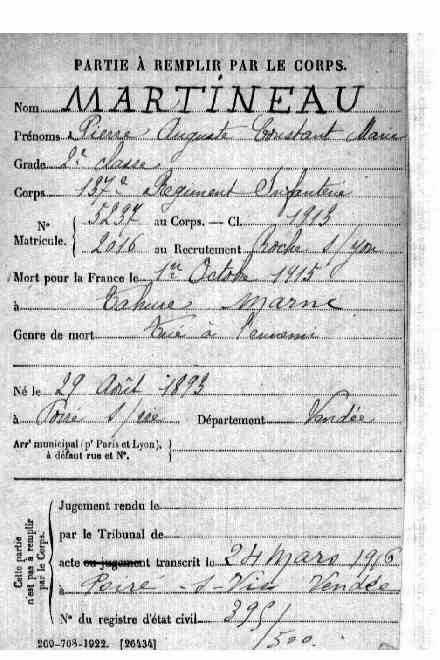 PARTIE À REMPLIR PAR LE CORPS.
Nom MARTINEAU
Prénoms Pierre Auguste Constant Marie
Grade 2e classe
Corps 137e Régiment Infanterie
N° Matricule. { 5237 au Corps. — Cl. 1913
2016 au Recrutement Roche s/yon
Mort pour la France le 1er Octobre 1915
à Tahure Marne
Genre de mort Tué à l'ennemi
Né le 29 Août 1893
à Poiré s/vie Département Vendée
Arrt municipal (pr Paris et Lyon), à défaut rue et N°. }
Cette partie n'est pas à remplir par le Corps. {
Jugement rendu le
par le Tribunal de
acte ou jugement transcrit le 24 Mars 1916
à Poiré-s-Vie Vendée
N° du registre d'état civil 395/
/500.
269-708-1922. [26434]